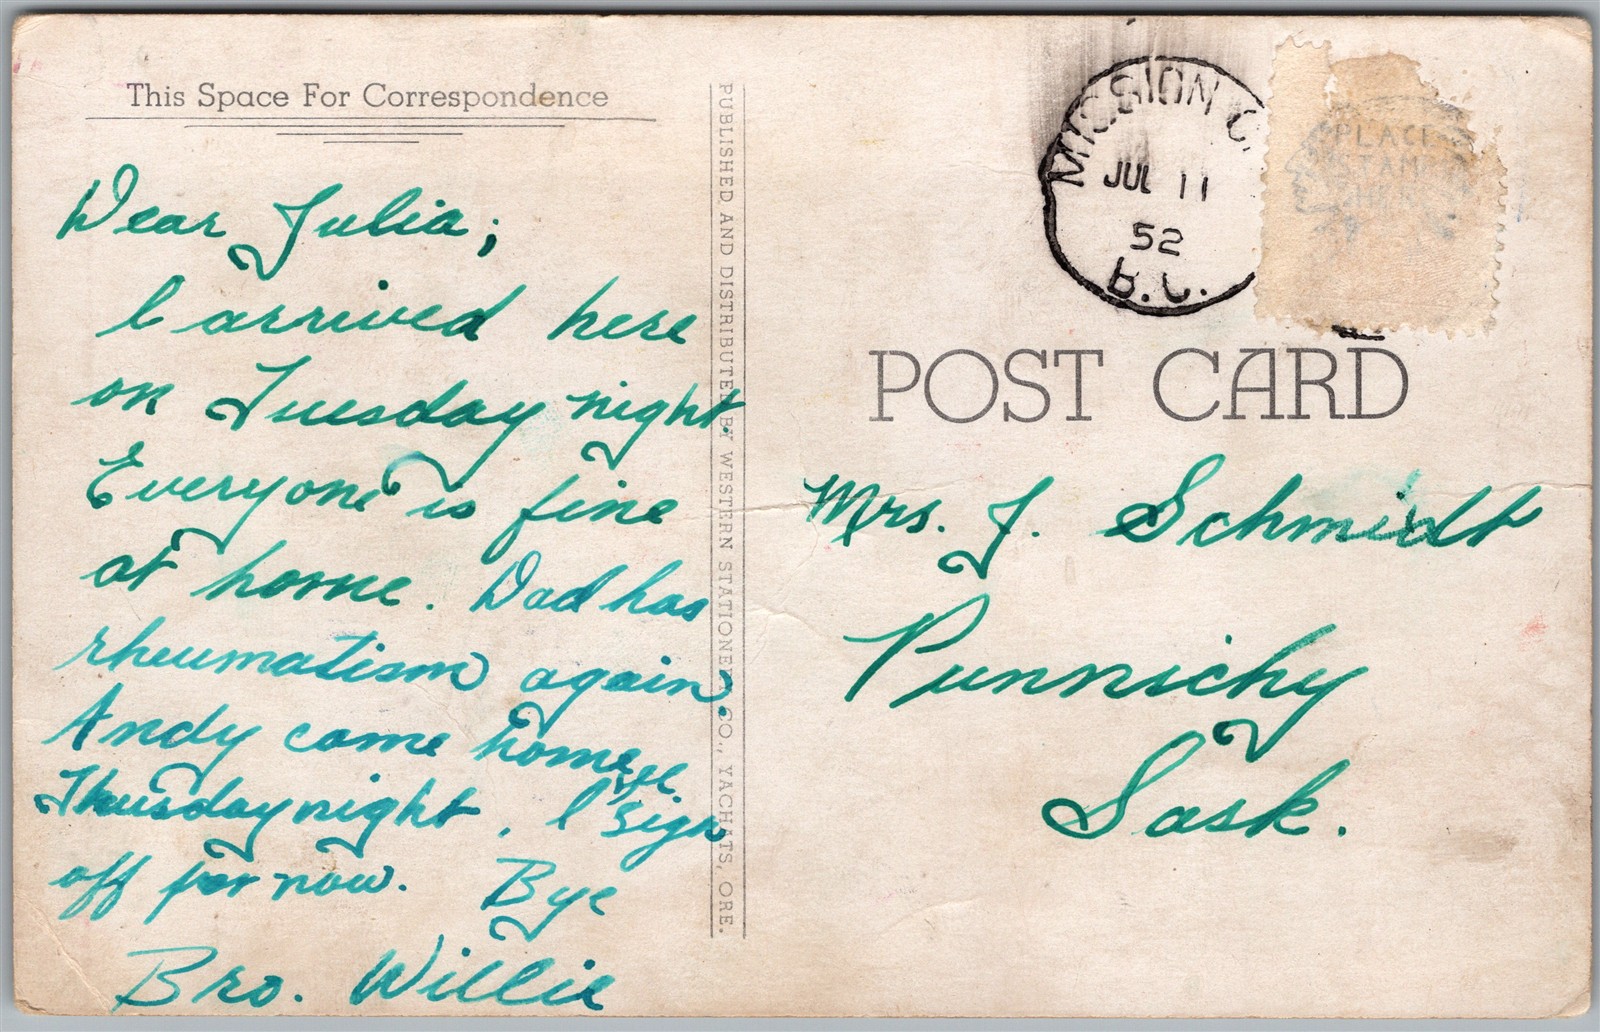 This Space For Correspondence
Dear Julia;
I arrived here
on Tuesday night.
Everyone is fine
at home. Dad has
rheumatism again.
Andy came home
Thursday night, I'll sign
off for now. Bye
Bro. Willie
PUBLISHED AND DISTRIBUTED BY WESTERN STATIONERY CO., YACHATS, ORE.
MISSION C
JUL 11
52
B.C.
PLACE
STAMP
HERE
POST CARD
Mrs. J. Schmidt
Punnichy
Sask.